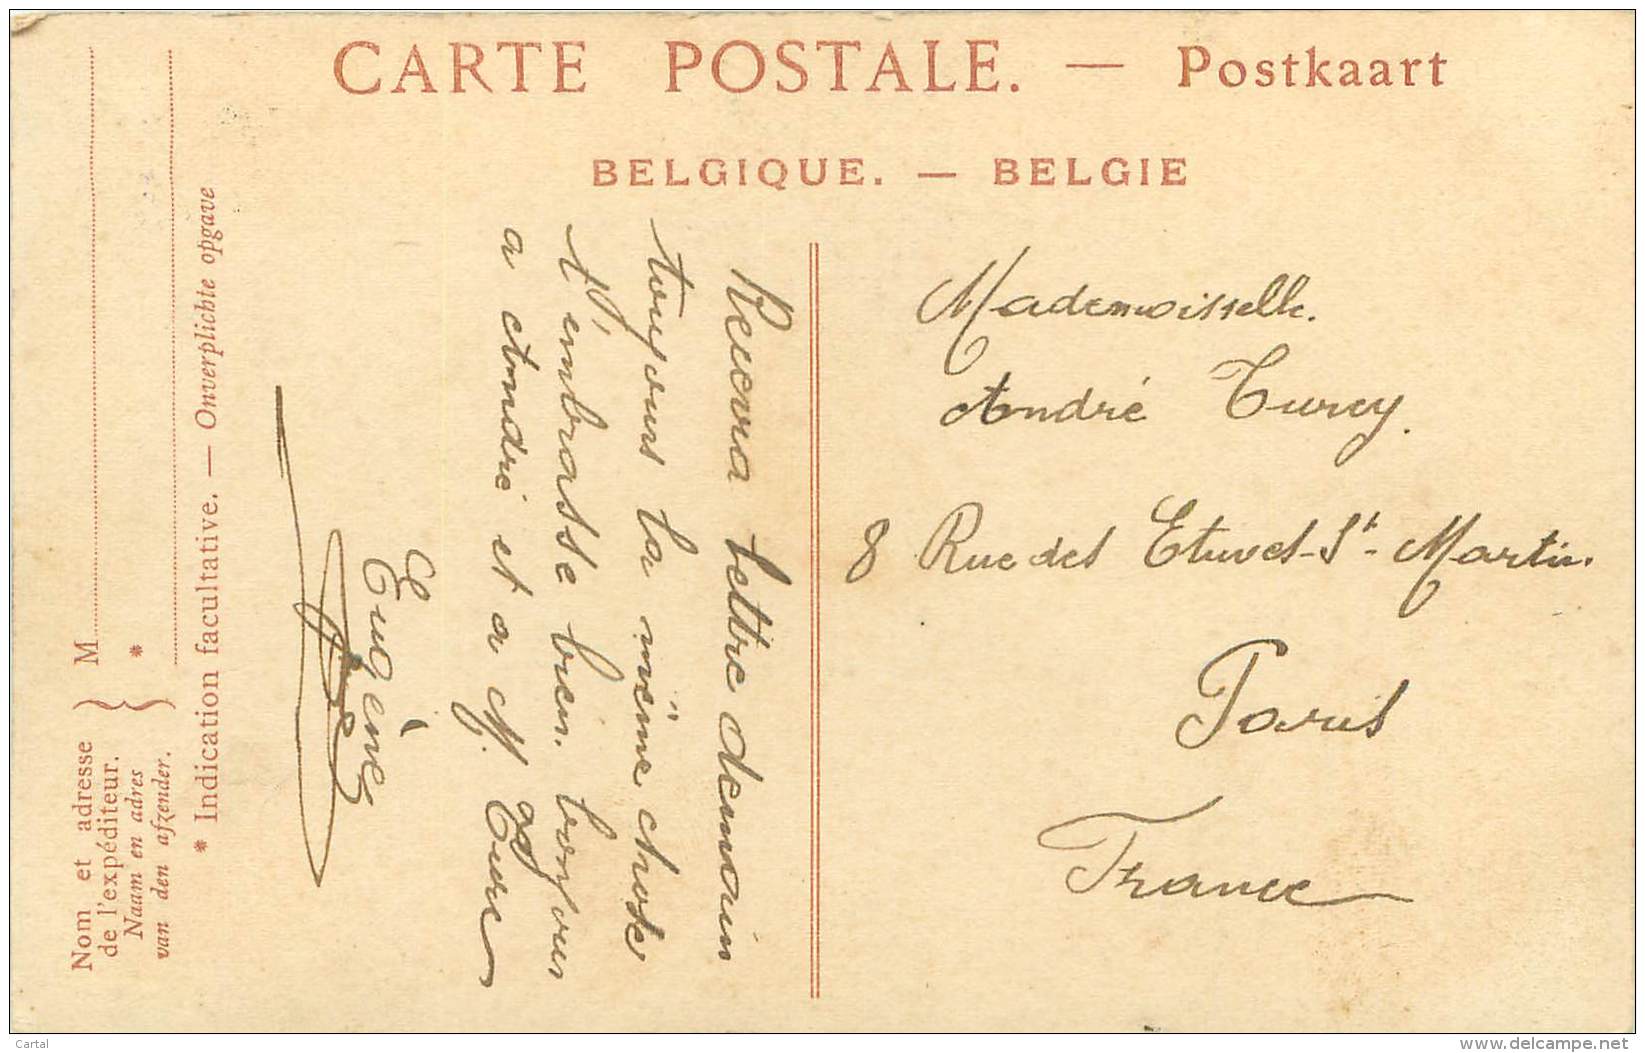 CARTE POSTALE. — Postkaart
BELGIQUE. — BELGIE
Nom et adresse
de l'expéditeur.
Naam en adres
van den afzender.
M
*
* Indication facultative. — Onverplichte opgave
Recevra lettre demain
toujours la même chose
t'embrasse bien. bonjour
a André et a M.
Eugène
Mademoisselle.
André Turcy.
8 Rue des Etuves-St-Martin.
Paris
France
Cartal
www.delcampe.net